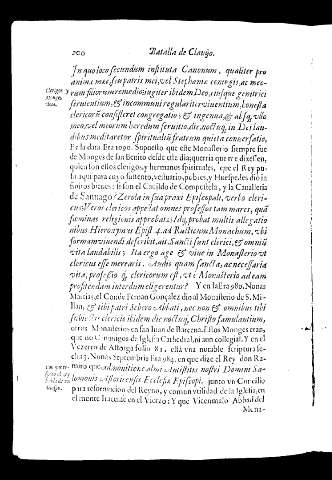 200 Batalla de Clavijo.
In quo loco secundum instituta Canonum, qualiter pro
animæ meæ, seu patris mei, vel Stephanæ coniugis, ac meo-
rum suorum remedio iugiter ibidem Deo, eiusque genitrici
seruientium, & in communi regulariter viuentium, honesta
clericorū consisteret congregatio; & ingenua, & absq, vllo
meorum heredum seruitio, die, noctuq, in Dei lau-
dibus meditaretur spiritualiū fratrum quieta conuersatio.
Es la data Era 1090. Supuesto que este Monasterio siempre fue
de Monges de san Benito desde este dia, querria que me dixessen,
quien son estos clerigos y hermanos spirituales, que el Rey pu-
so aqui para cuyo sustento, vestuario, pobres, y Huespedes dio
bienes: si son el Cauildo de Compostela, y la Caualleria
de Santiago? Zerola in sua praxi Episcopali, verbo cleri-
cus: Verū clericos appellat omnes professos tam mares, quā
fæminas religionis approbatæ; Idq, probat multis alle gatio-
nibus Hieronymus Epist. 4. ad Rusticum Monachum, vbi
formam viuendi descripsit, ait Sancti sunt clerici, & omniū
vita laudabilis; Ita ergo age & viue in Monasterio vt
clericus esse merearis.
vita, professio q, clericorum est, vt è Monasterio ad eam
prosilendam interdum eligerentur? Y en la Era 980. Nonas
Martias, el Conde Fernan Gonzalez dio al Monasterio de S. Mi-
llan, & tibi patri Scluro Abbati, nec non & omnibus tibi
subiectis clericis ibidem die noctuq, Christo famulantium,
otros Monasterios en san Iuan de Es Monges eran,
que no Canonigos de Iglesia Cathedral, ni aun colegial. Y en el
Vezerro de Astorga folio 81. està vna notable scriptura fe-
cha 3. Nonas Septembris Era 984. en que dize el Rey don Ra-
miro que admonitione almi Antistitis nostri Domini Sa-
lomonis Astoricensis Ecclesiæ Episcopi, junto vn Concilio
para reformacion del Reyno, y comun vtilidad de la Iglesia, en
el monte Irago en el Vierzo: Y que Vicentius Abbad del
Mona-
Clerigos